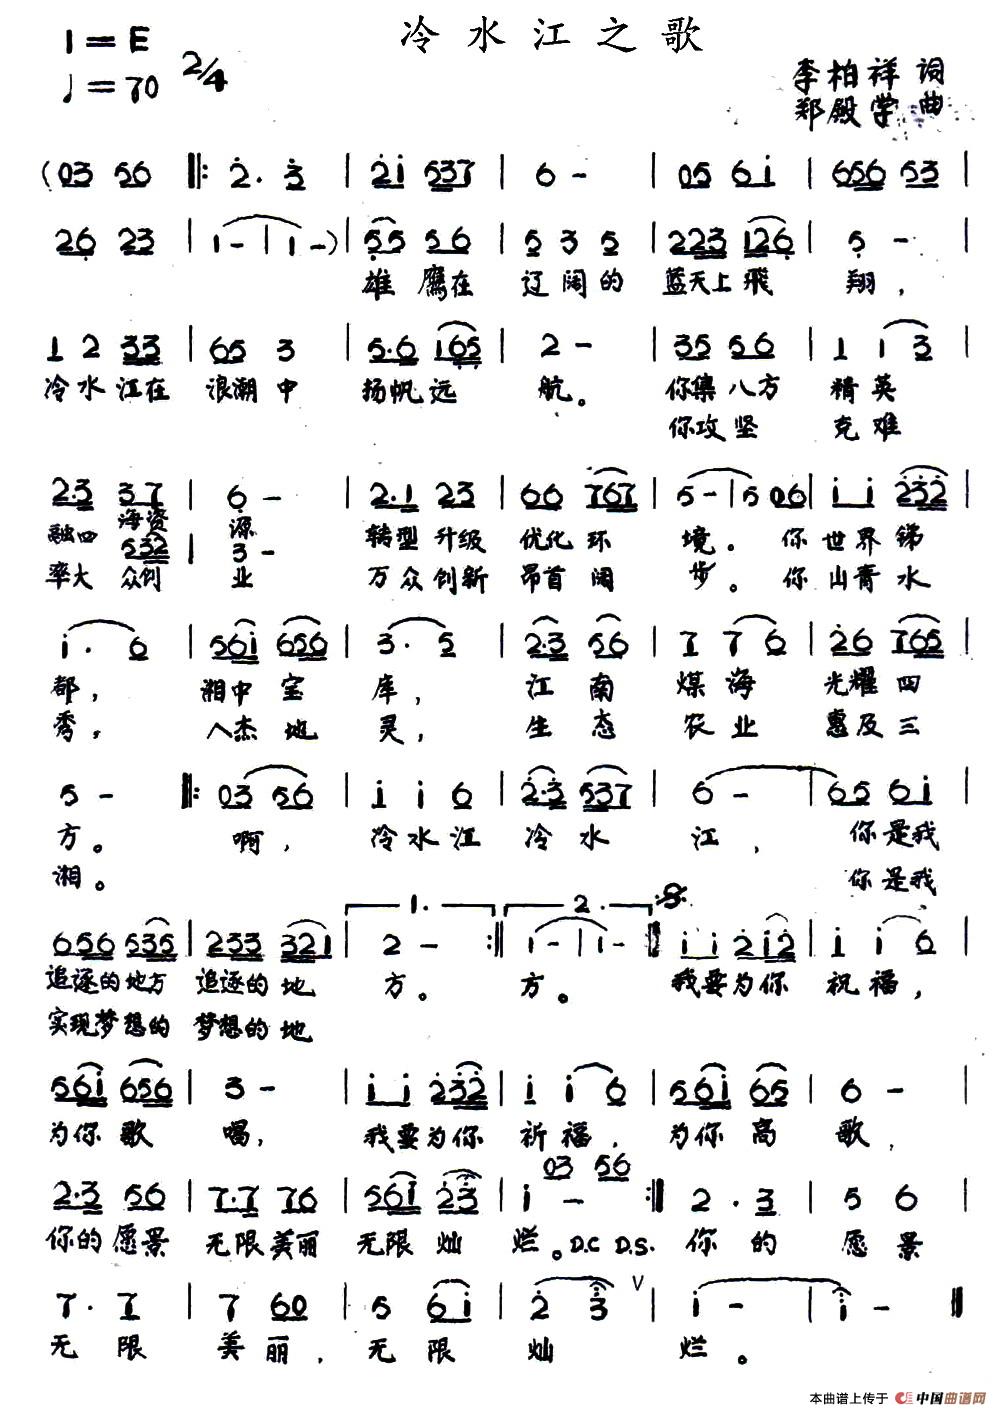 冷水江之歌
1=E 2/4
♩=70
李柏祥 词
郑殿学 曲
(03 56 ‖: 2. 3 | 21 537 | 6 - | 05 61 | 656 53 |
26 23 | 1 - | 1 - ) | 55 56 | 5 3 5 | 223 126 | 5 - |
雄鹰在 辽阔的 蓝天上飛 翔，
1 2 33 | 65 3 | 5.6 165 | 2 - | 35 56 | 1 1 3 |
冷水江在 浪潮中 扬帆远 航。 你集八方 精英
你攻坚 克难
2.3 37 | 6 - | 2.1 23 | 66 767 | 5 - | 5 06 | 1 1 232 |
融四海资 源 转型升级 优化环 境。 你世界锑
532 | 3 - |
率大众创 业 万众创新 昂首阔 步。 你山青水
1. 6 | 561 656 | 3. 5 | 2.3 56 | 7 7 6 | 26 765 |
都， 湘中宝 库， 江南 煤海 光耀四
秀， 人杰地 灵， 生态 农业 惠及三
5 - ‖: 03 56 | 1 1 6 | 2.3 537 | 6 - | 65 61 |
方。 啊， 冷水江 冷水 江， 你是我
湘。 你是我
1. 2.
656 535 | 233 321 | 2 - :‖ 1 - | 1 - ‖ 11 212 | 1 1 6 |
追逐的地方 追逐的地 方。 方。 我要为你 祝福，
实现梦想的 梦想的地
561 656 | 3 - | 11 232 | 1 1 6 | 561 65 | 6 - |
为你歌 唱， 我要为你 祈福， 为你高 歌，
03 56
2.3 56 | 7.7 76 | 561 23 | 1 - :‖ 2. 3 | 5 6 |
你的愿景 无限美丽 无限灿 烂。D.C D.S. 你的 愿景
7. 7 | 7 60 | 5 61 | 2 3 ∨ | 1 - | 1 - ‖
无限 美丽， 无限 灿 烂。
本曲谱上传于 中国曲谱网